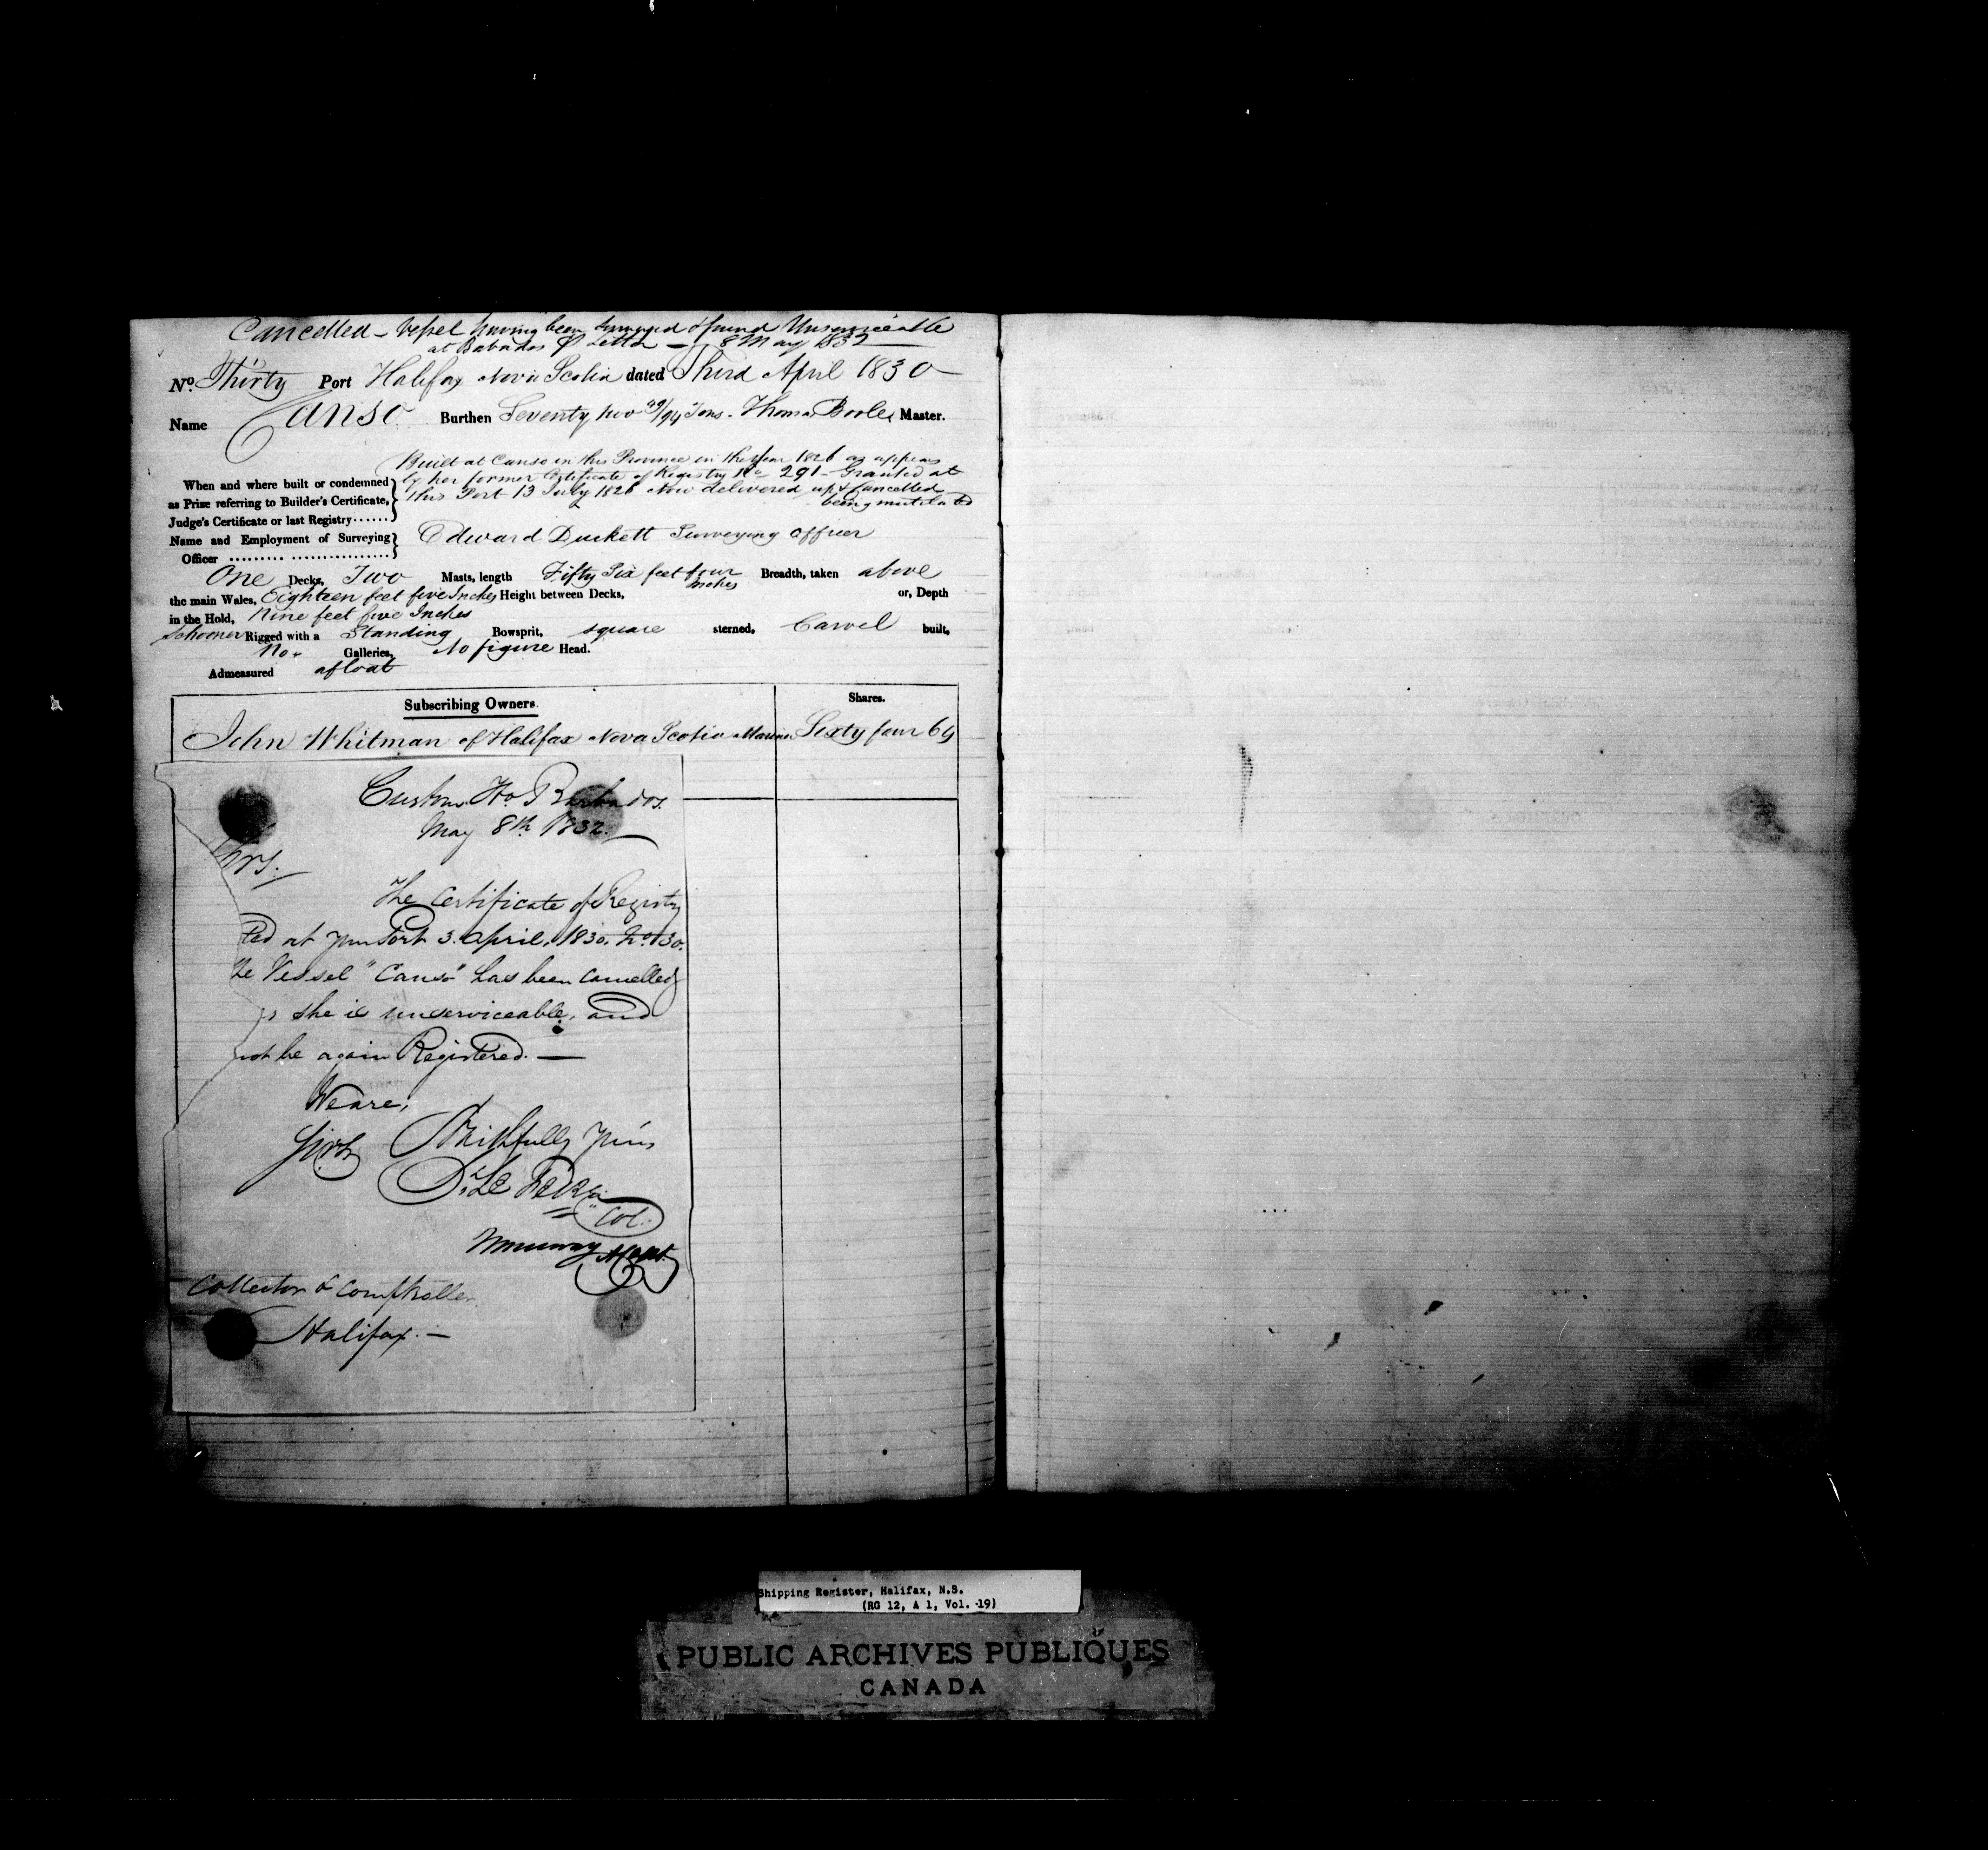 Cancelled - Vessel having been surveyed & found Unserviceable
at Babados P Letter - 8 May 1832
No. Thirty Port Halifax Nova Scotia dated Third April 1830
Name Canso Burthen Seventy two 49/94 Tons. Thomas Master.
Built at Canso in this Province in the year 1826 as appears
by her former Certificate of Registry No 291 - Granted at
this Port 13 July 1826 Now delivered up & Cancelled
being mutilated
When and where built or condemned
as Prize referring to Builder's Certificate,
Judge's Certificate or last Registry......
Name and Employment of Surveying
Officer ......... ................
Edward Duckett Surveying Officer
One Decks, Two Masts, length Fifty Six feet four Inches Breadth, taken above
the main Wales, Eighteen feet five Inches Height between Decks, or, Depth
in the Hold, Nine feet five Inches
Schooner Rigged with a Standing Bowsprit, square sterned, Carvel built,
No Galleries, No figure Head.
Admeasured afloat
Subscribing Owners. Shares.
John Whitman of Halifax Nova Scotia Mariner Sixty four 64
Custom Ho Barbados.
May 8th 1832.
The Certificate of Registry
ted at your Port 3. April, 1830. No. 30.
he Vessel "Canso" has been cancelled
s she is unserviceable, and
not be again Registered. —
We are,
Sirs Faithfully yours
Col.
Collector & Comptroller
Halifax. —
Shipping Register, Halifax, N.S.
(RG 12, A 1, Vol. 19)
PUBLIC ARCHIVES PUBLIQUES
CANADA